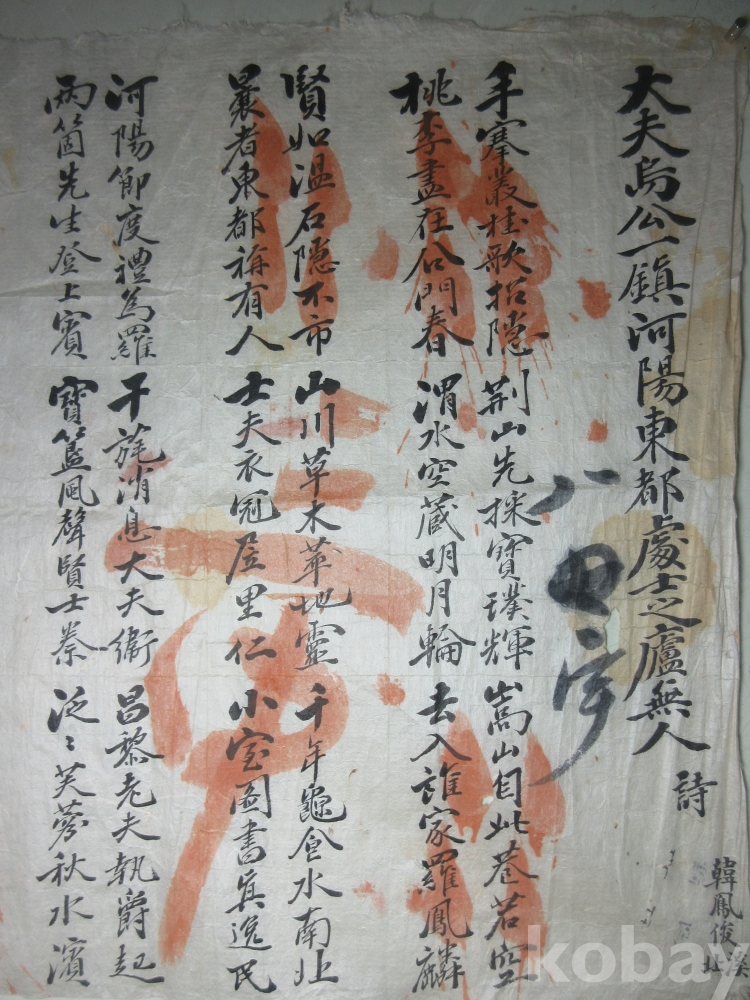 大夫烏公一鎮河陽東都處士之廬無人 詩
韓鳳俊
手搴叢桂歌招隱 荆山先採寶璞輝 嵩山自此巷若空
桃李盡在公門春 渭水空藏明月輪 去入誰家羅鳳麟
賢如溫石隐不市 山川草木華地靈 千年龜食水南北
曩者東都稱有人 士夫衣冠居里仁 小室圖書眞逸民
河陽節度禮爲羅 干旄消息大夫衛 昌黎老夫執爵起
兩箇先生登上賓 寶籃風聲賢士秦 泛〻芙蓉秋水濱
kobay